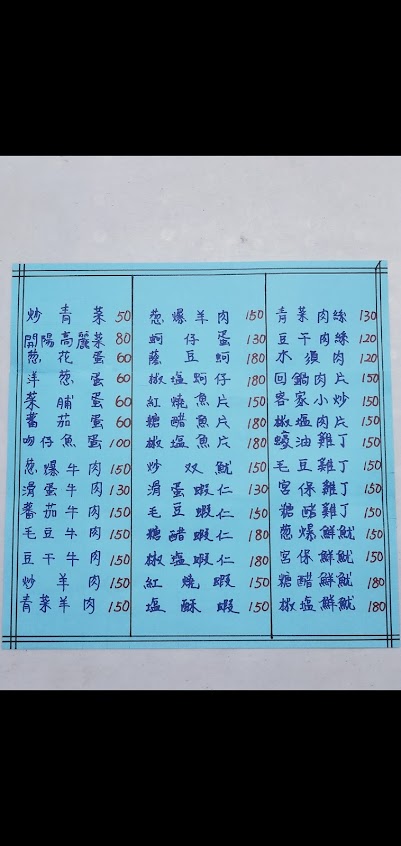 炒青菜 50
開陽高麗菜 80
葱花蛋 60
洋葱蛋 60
菜脯蛋 60
蕃茄蛋 60
吻仔魚蛋 100
葱爆牛肉 150
滑蛋牛肉 130
蕃茄牛肉 150
毛豆牛肉 150
豆干牛肉 150
炒羊肉 150
青菜羊肉 150
葱爆羊肉 150
蚵仔蛋 130
蔭豆蚵 180
椒塩蚵仔 180
紅燒魚片 150
糖醋魚片 180
椒塩魚片 180
炒双魷 150
滑蛋蝦仁 130
毛豆蝦仁 150
糖醋蝦仁 180
椒塩蝦仁 180
紅燒蝦 150
塩酥蝦 150
青菜肉絲 130
豆干肉絲 120
木須肉 120
回鍋肉片 150
客家小炒 150
椒塩肉片 150
蠔油雞丁 150
毛豆雞丁 150
宮保雞丁 150
糖醋雞丁 150
葱爆鮮魷 150
宮保鮮魷 150
糖醋鮮魷 180
椒塩鮮魷 180